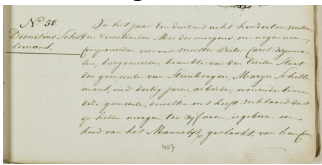 No 50.
Dionisius Schel
lemans.
In het jaar een duizend acht honderd en zestig
den dertienden Mei des morgens om negen uren
compareerden voor ons Meester Pieter Carel
burgemeester beambte van den Burger Staat
der gemeente van Steenbergen, Marijn Schelle
mans, oud dertig jaren, arbeider, wonende binnen
deze gemeente, dewelke ons heeft verklaard dat
op heden morgen ten vijf uren, is geboren een
kind van het Mannelijk geslacht, van hem
407